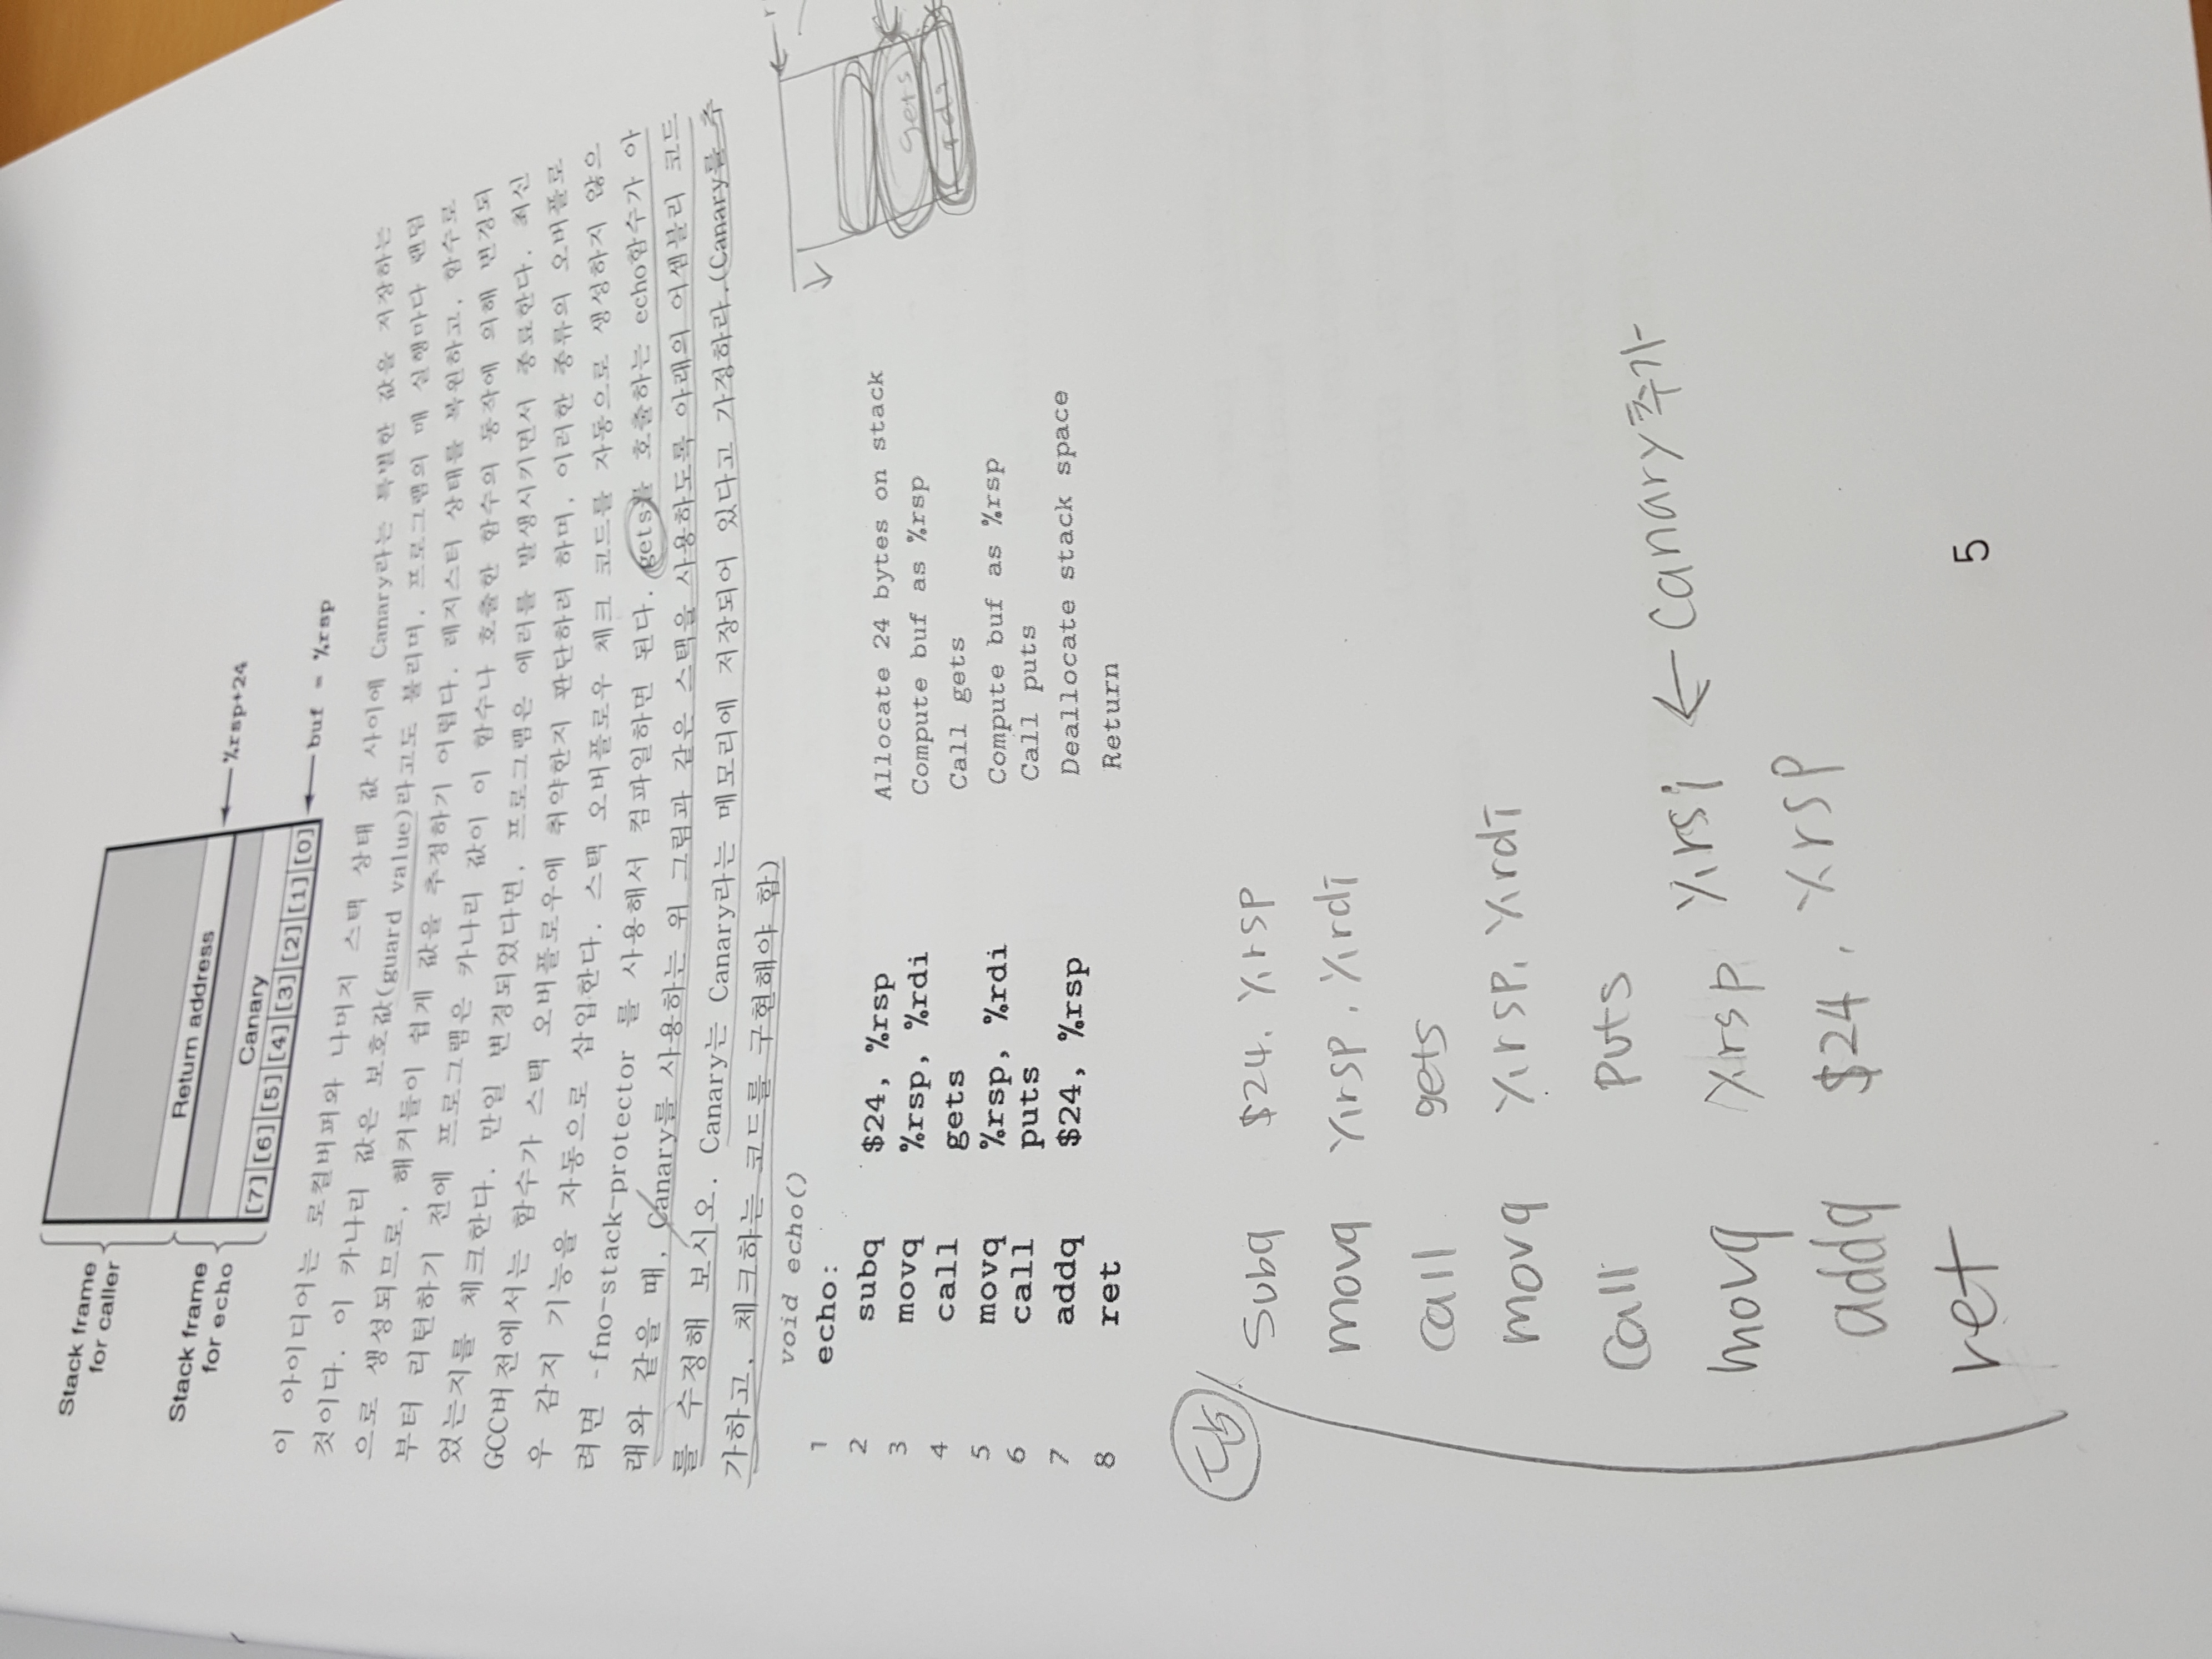 Stack frame
for caller
Return address
Stack frame
for echo
%rsp+24
Canary
[7] [6] [5] [4] [3] [2] [1] [0]
buf = %rsp
이 아이디어는 로컬버퍼와 나머지 스택 상태 값 사이에 Canary라는 특별한 값을 저장하는
것이다. 이 카나리 값은 보호값(guard value)라고도 불리며, 프로그램의 매 실행마다 랜덤
으로 생성되므로, 해커들이 쉽게 값을 추정하기 어렵다. 레지스터 상태를 복원하고, 함수로
부터 리턴하기 전에 프로그램은 카나리 값이 이 함수나 호출한 함수의 동작에 의해 변경되
었는지를 체크한다. 만일 변경되었다면, 프로그램은 에러를 발생시키면서 종료한다. 최신
GCC버전에서는 함수가 스택 오버플로우에 취약한지 판단하려 하며, 이러한 종류의 오버플로
우 감지 기능을 자동으로 삽입한다. 스택 오버플로우 체크 코드를 자동으로 생성하지 않으
려면 -fno-stack-protector 를 사용해서 컴파일하면 된다. gets를 호출하는 echo함수가 아
래와 같을 때, Canary를 사용하는 위 그림과 같은 스택을 사용하도록 아래의 어셈블리 코드
를 수정해 보시오. Canary는 Canary라는 메모리에 저장되어 있다고 가정하라.(Canary를 추
가하고, 체크하는 코드를 구현해야 함)
void echo()
1 echo:
2 subq $24, %rsp Allocate 24 bytes on stack
3 movq %rsp, %rdi Compute buf as %rsp
4 call gets Call gets
5 movq %rsp, %rdi Compute buf as %rsp
6 call puts Call puts
7 addq $24, %rsp Deallocate stack space
8 ret Return
r
gets
rdi
답
subq $24, %rsp
movq %rsp, %rdi
call gets
movq %rsp, %rdi
call puts
movq %rsp %rsi ← Canary 추가
addq $24, %rsp
ret
5